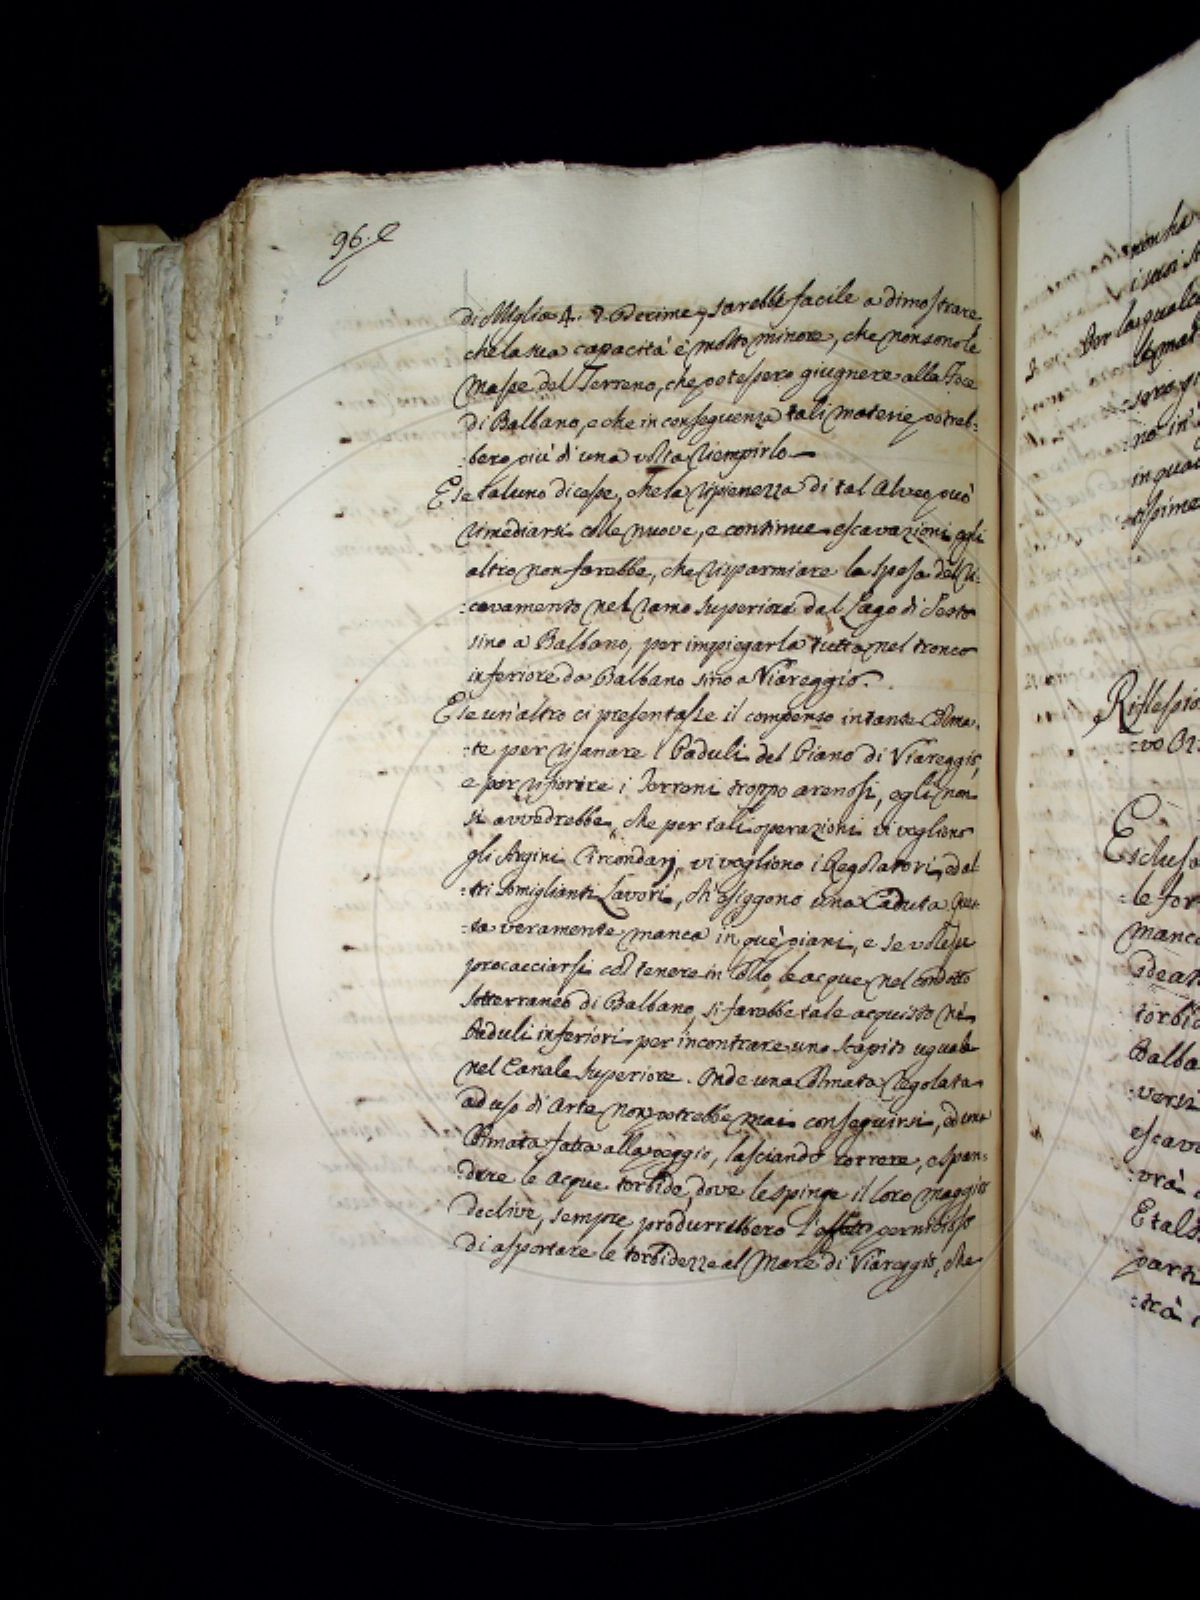 96.
di Miglia 4. 7. Decime, sarebbe facile a dimostrare
che la sua capacità è molto minore, che non sono le
Masse del Terreno, che potessero giugnere alla Foce
di Balbano, e che in conseguenza tali materie potreb-
:bero più di una volta riempirlo
E se taluno dicesse, che la ripienezza di tal Alveo può
rimediarsi colle nuove, e continue escavazioni, egli
altro non farebbe, che risparmiare la spesa del ri-
:cavamento nel ramo superiore dal Lago di Sesto
sino a Balbano, per impiegarla tutta nel tronco
inferiore da Balbano sino a Viareggio.
E se un'altro ci presentasse il compenso in tante Colma-
:te per risanare i Paduli del Piano di Viareggio,
e per rifiorire i Terreni troppo arenosi, egli non
si avvedrebbe, che per tali operazioni vi vogliono
gli Argini Circondarj, vi vogliono i Regolatori, ed al-
:tri somiglianti Lavori, ch'esiggono una Caduta. Ques-
:ta veramente manca in que' piani, e se volesse
procacciarsi col tenere in collo le acque nel condotto
sotterraneo di Balbano, si farebbe tale acquisto ne'
Paduli inferiori per incontrare uno scapito uguale
nel Canale superiore. Onde una Colmata regolata
ad uso di Arte non potrebbe mai conseguirsi, ed una
Colmata fatta alla peggio, lasciando correre, e span-
:dere le acque torbide, dove le spinge il loro maggior
declive, sempre produrrebbero l'effetto pernicioso
di asportare le torbidezze al Mare di Viareggio, che
non ha
Per la qualce
in qua
Riflessio
Esclusa
le for
manca
idear
torbid
Balba
:versi
escava
:vrà
E tal
parti
:trà